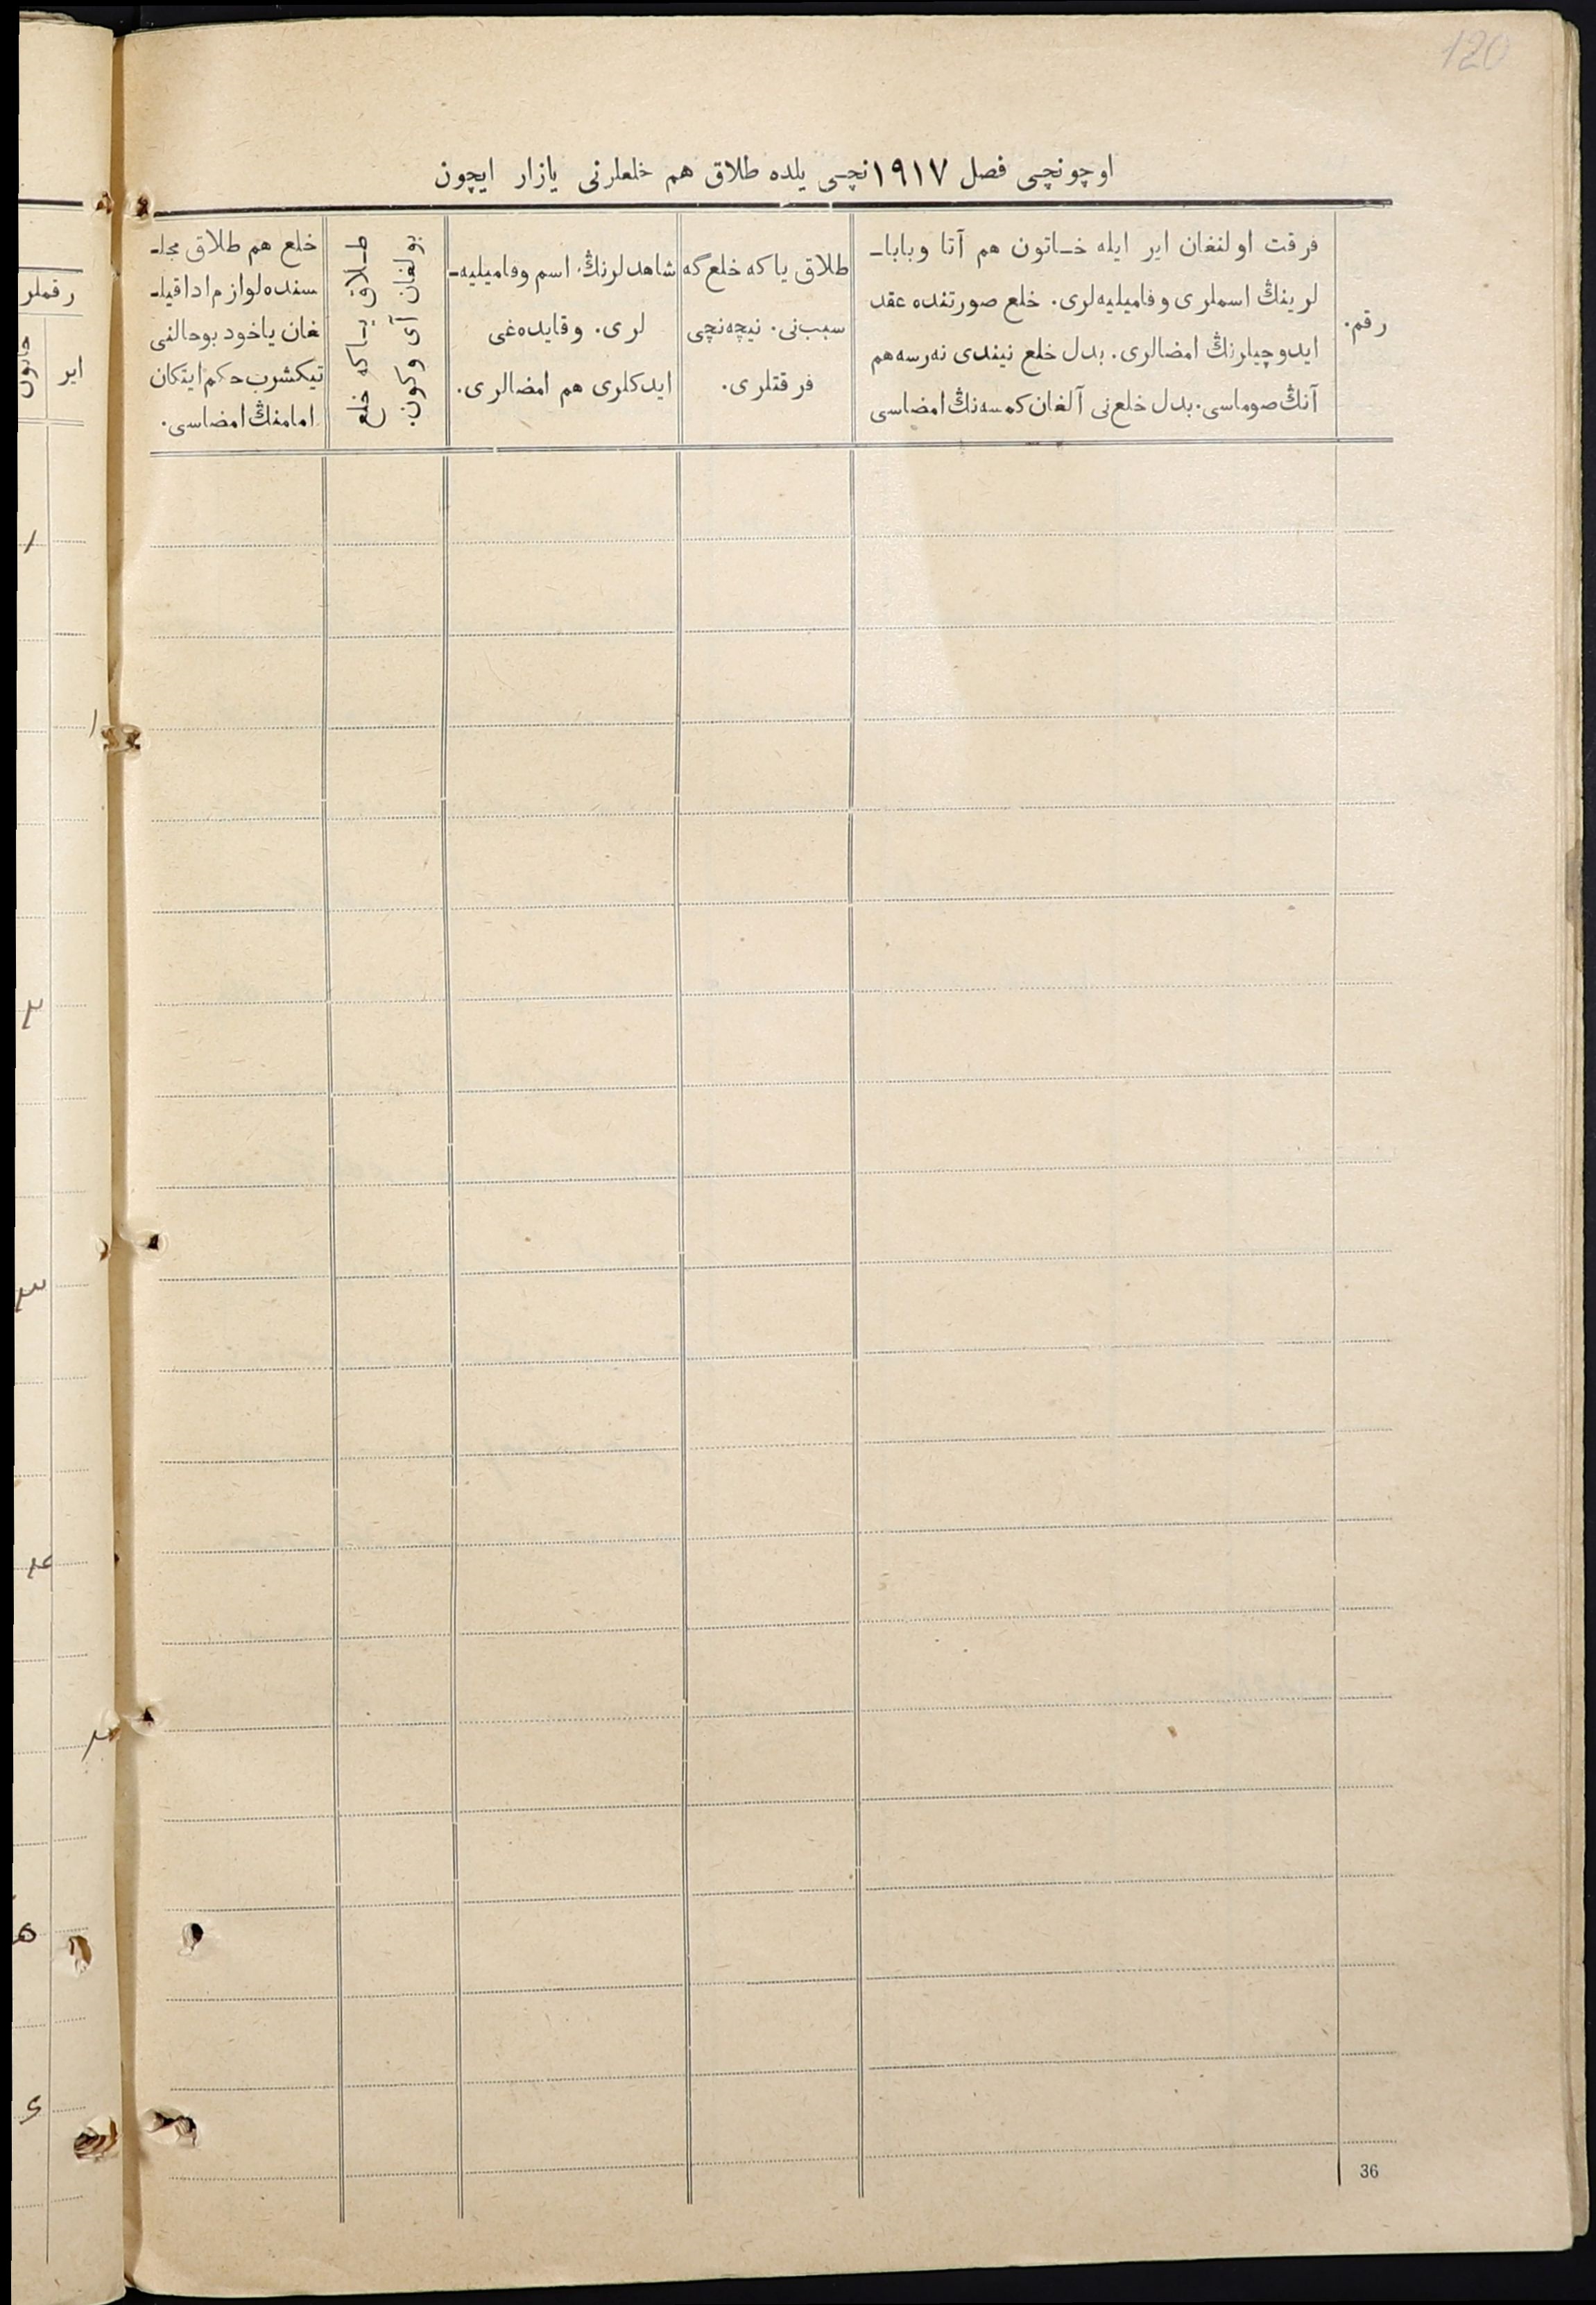 120
اوچونچی فصل ١٩١٧نچی یلده طلاق هم خلعلرنی یازار ایچون
رقم.
فرقت اولنغان ایر ایله خـاتون هم آتا وباباـ
لرینڭ اسملری وفامیلیه‌لری. خلع صورتنده عقد
ایدوچیلرنڭ امضالری. بدل خلع نیندی نەرسه‌هم
آنڭ صوماسی. بدل خلع‌نی آلغان کمسه‌نڭ امضاسی
طلاق یاکه خلع‌گه
سبب‌نی. نیچه‌نچی
فرقتلری.
شاهدلرنڭ اسم وفامیلیه‌ـ
لری. وقایده‌غی
ایدکلری هم امضالری.
طـلاق یـاکه خلع
بولغان آی وکون.
خلع هم طلاق مجلـ
سنده‌لوازم اداقیلـ
غان یاخود بوحالنی
تیکشرب حکم ایتکان
امامنڭ امضاسی.
رقملر
ایر
خاتون
١
١
٢
٣
٤
٢
٥
٦
36